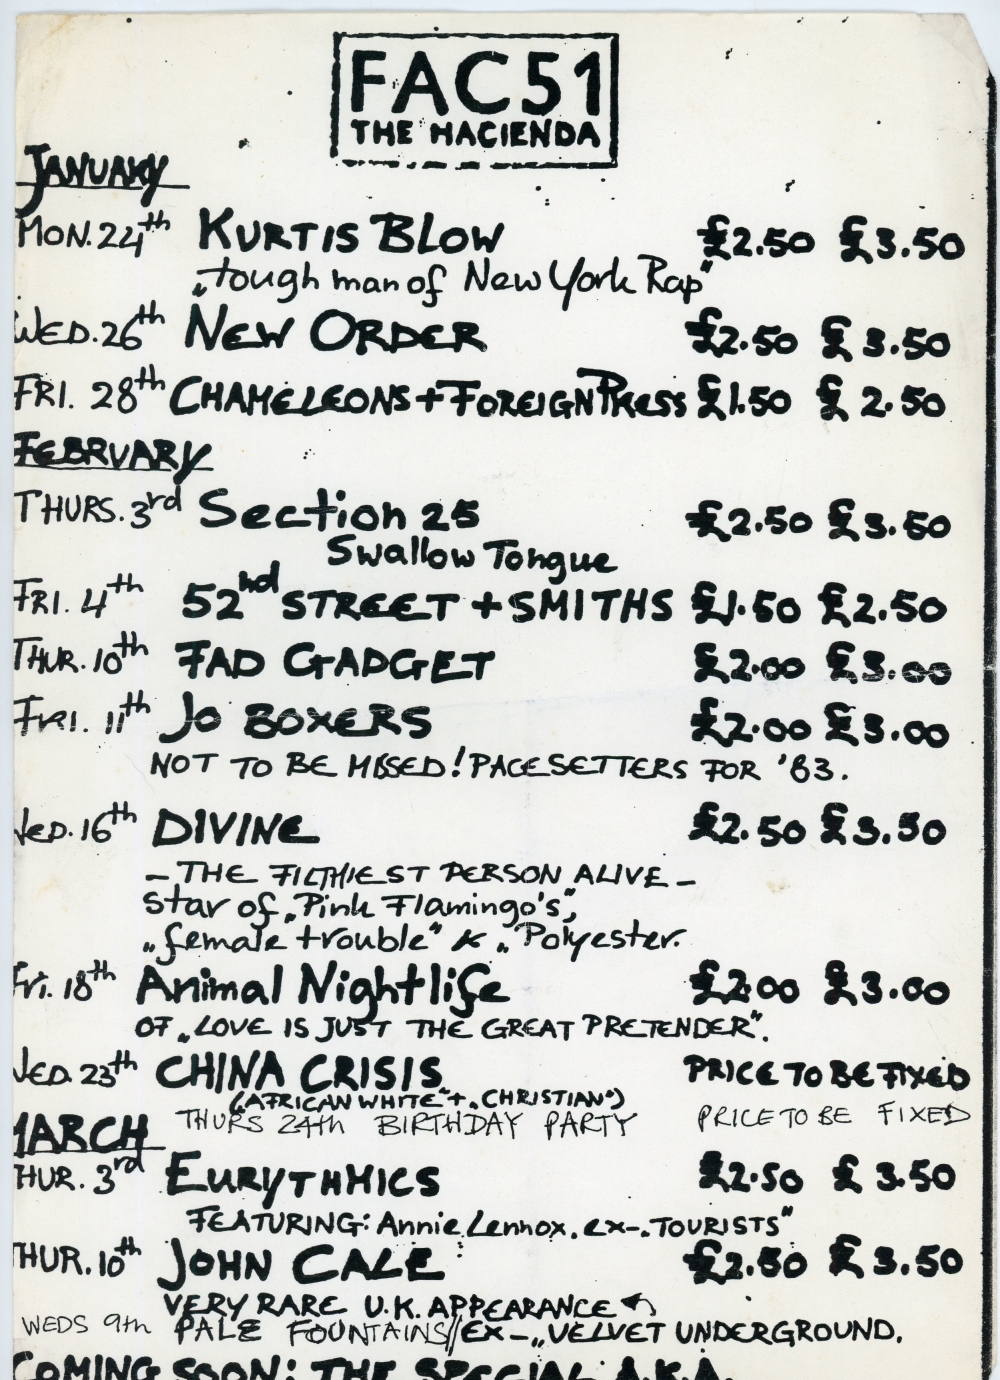 FAC 51
THE HACIENDA
JANUARY
MON. 24th KURTIS BLOW £2.50 £3.50
„tough man of New York Rap"
WED. 26th NEW ORDER £2.50 £3.50
FRI. 28th CHAMELEONS + FOREIGN PRESS £1.50 £2.50
FEBRUARY
THURS. 3rd Section 25 £2.50 £3.50
Swallow Tongue
FRI. 4th 52nd STREET + SMITHS £1.50 £2.50
THUR. 10th FAD GADGET £2.00 £3.00
FRI. 11th JO BOXERS £2.00 £3.00
NOT TO BE MISSED! PACESETTERS FOR '83.
WED. 16th DIVINE £2.50 £3.50
– THE FILTHIEST PERSON ALIVE –
Star of „Pink Flamingo's",
„female trouble" & „Polyester.
Fri. 18th Animal Nightlife £2.00 £3.00
OF „LOVE IS JUST THE GREAT PRETENDER".
WED. 23th CHINA CRISIS PRICE TO BE FIXED
(„AFRICAN WHITE" + „CHRISTIAN")
THURS 24th BIRTHDAY PARTY PRICE TO BE FIXED
MARCH
THUR. 3rd EURYTHMICS £2.50 £3.50
FEATURING: Annie Lennox. ex-„TOURISTS"
THUR. 10th JOHN CALE £2.50 £3.50
VERY RARE U.K. APPEARANCE
WEDS 9th PALE FOUNTAINS // EX-„VELVET UNDERGROUND.
COMING SOON: THE SPECIAL A.K.A.